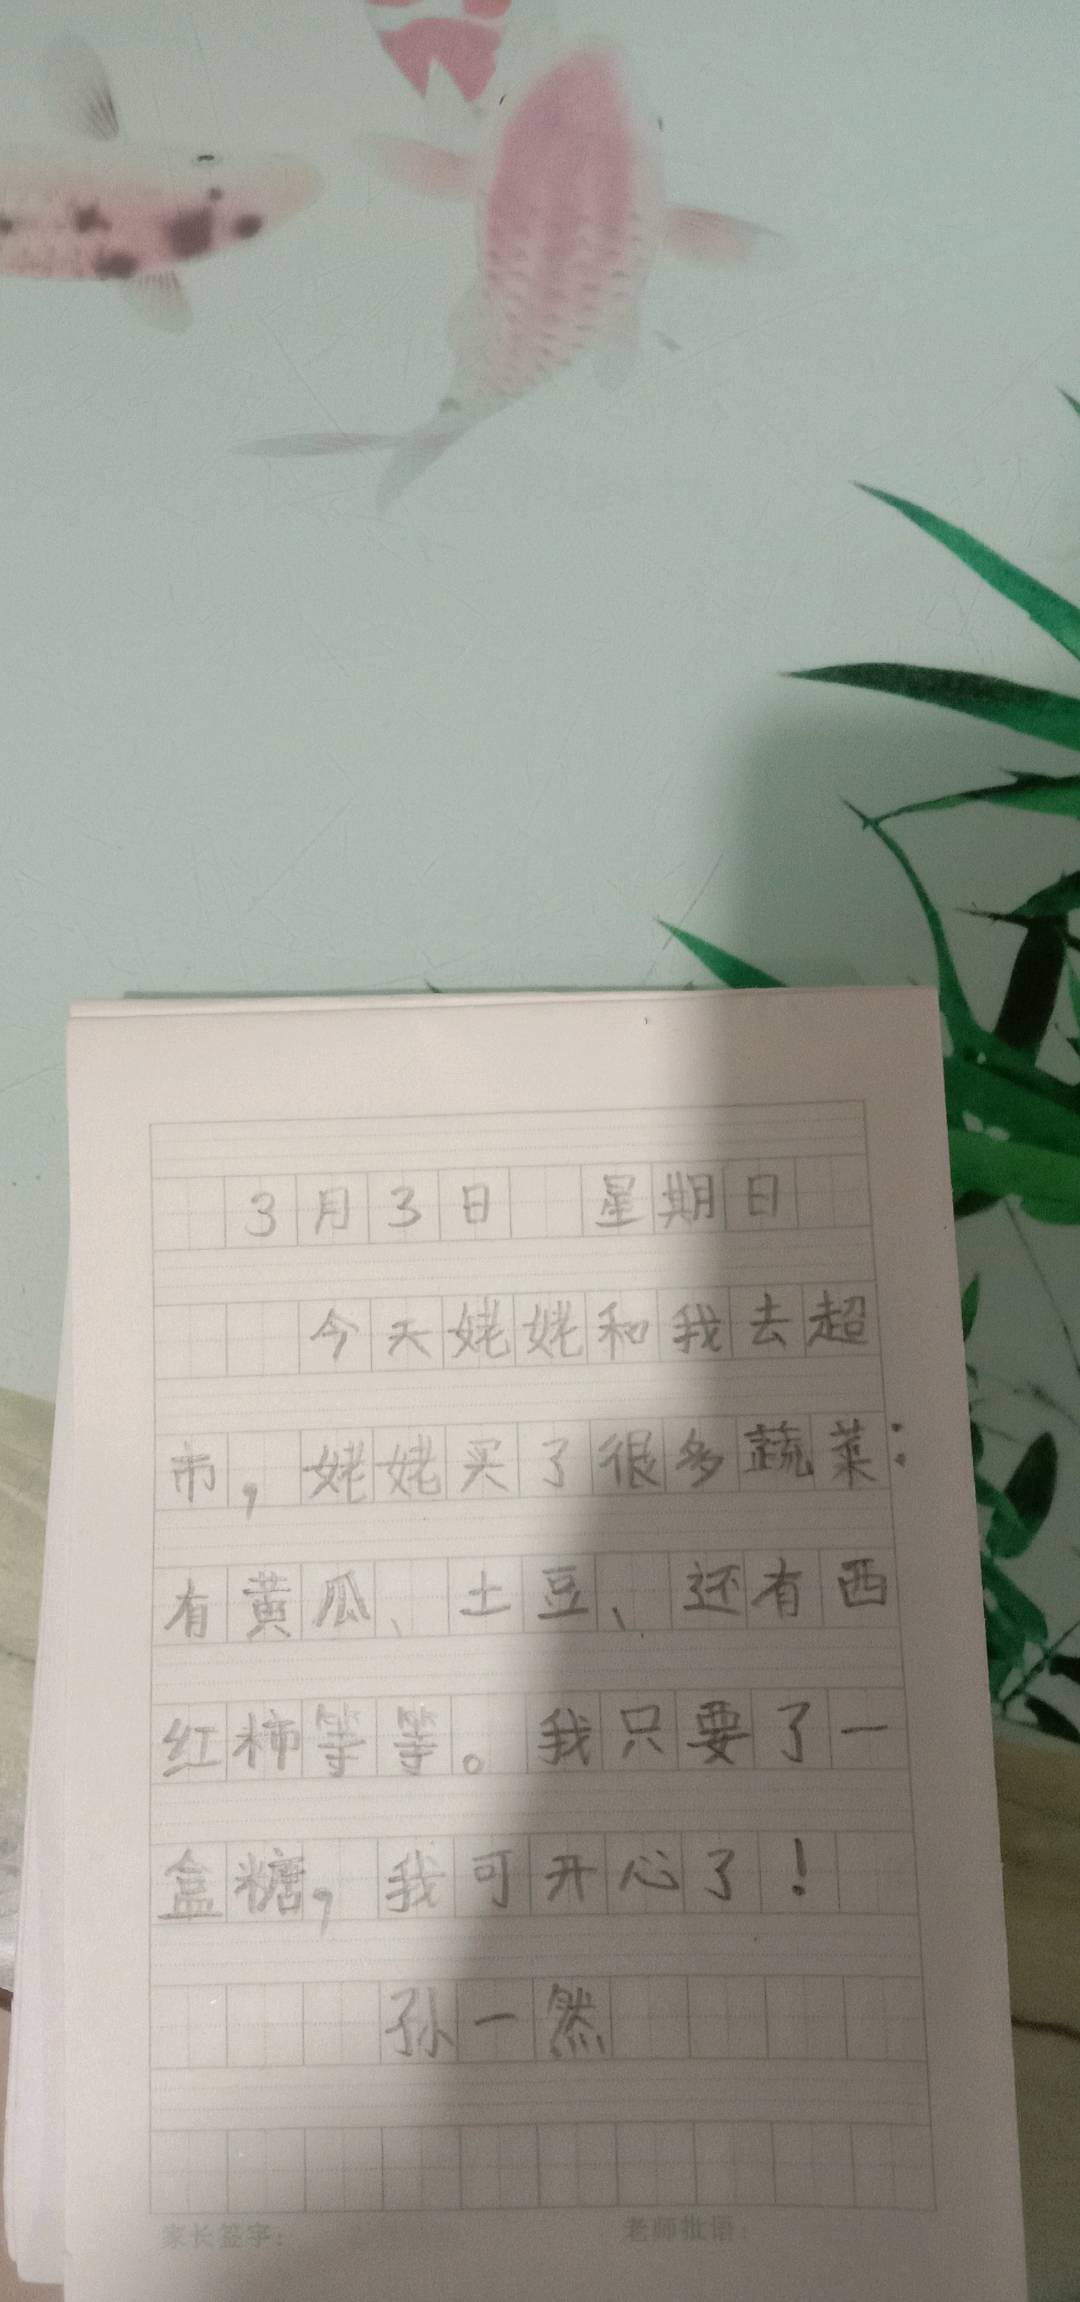 3月3日 星期日
今天姥姥和我去超
市，姥姥买了很多蔬菜：
有黄瓜、土豆、还有西
红柿等等。我只要了一
盒糖，我可开心了！
孙一然
家长签字： 老师批语：